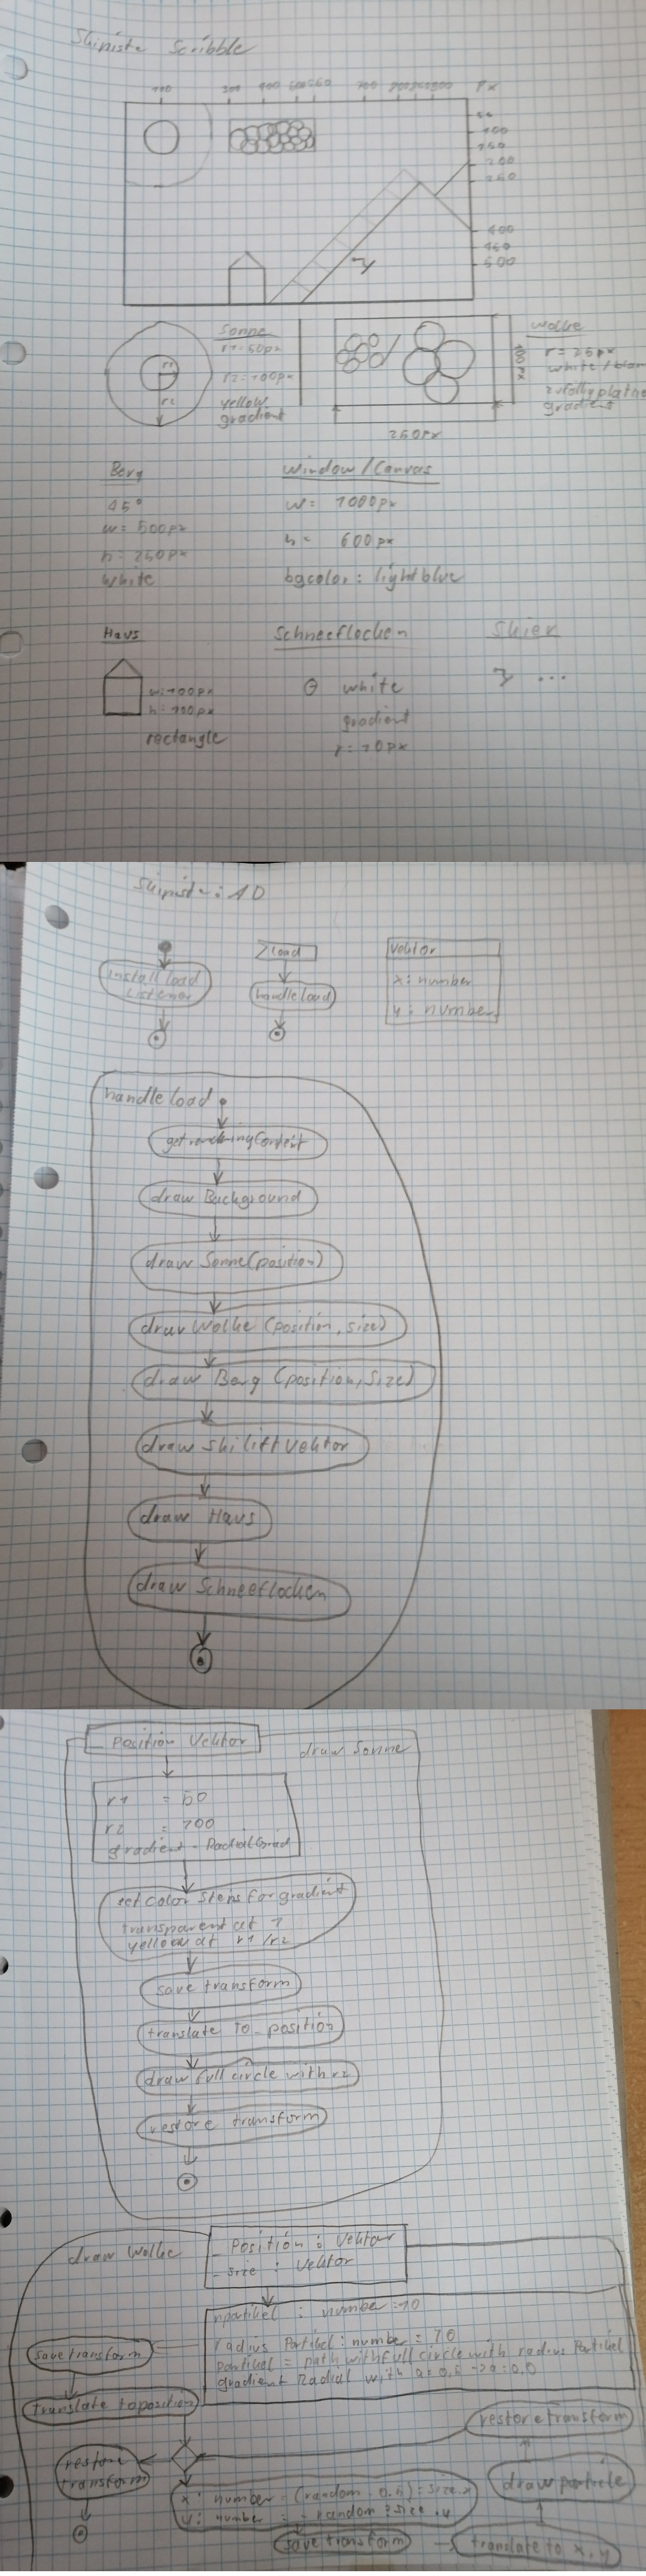 Skipiste Scribble
100 300 400 700 Px
50
100
150
200
250
400
450
500
Sonne
r1=50px
r2=100px
yellow
gradient
r1
r2
Wolke
r=25px
white/
gradient
100 px
250px
Berg
45°
w=500px
h=250px
white
Window/Canvas
w= 1000px
h= 600px
bgcolor: lightblue
Haus
w:100px
h=100px
rectangle
Schneeflocken
white
gradient
r=10px
Skier
...
Skipiste: AD
install load
Listener
load
handleload
Vektor
x: number
y: number
handleload
getrenderingContext
draw Background
draw Sonne(position)
draw Wolke (position, size)
draw Berg (position, size)
draw Skilift Vektor
draw Haus
draw Schneeflocken
_ Position Vektor
draw Sonne
r1 = 50
r2 = 100
gradient = RadialGrad
set color steps for gradient
transparent at 1
yellow at r1/r2
save transform
translate to _position
draw full circle with r2
restore transform
draw Wolke
_ Position : Vektor
_ size : Vektor
npartikel : number =10
radius Partikel: number = 70
partikel = path with full circle with radius Partikel
gradient Radial with a=0.5 -> a=0.0
save transform
translate to position
restore transform
restore transform
x: number = (random - 0.5) * size.x
y: number = - random * size.y
draw particle
save transform
translate to x, y